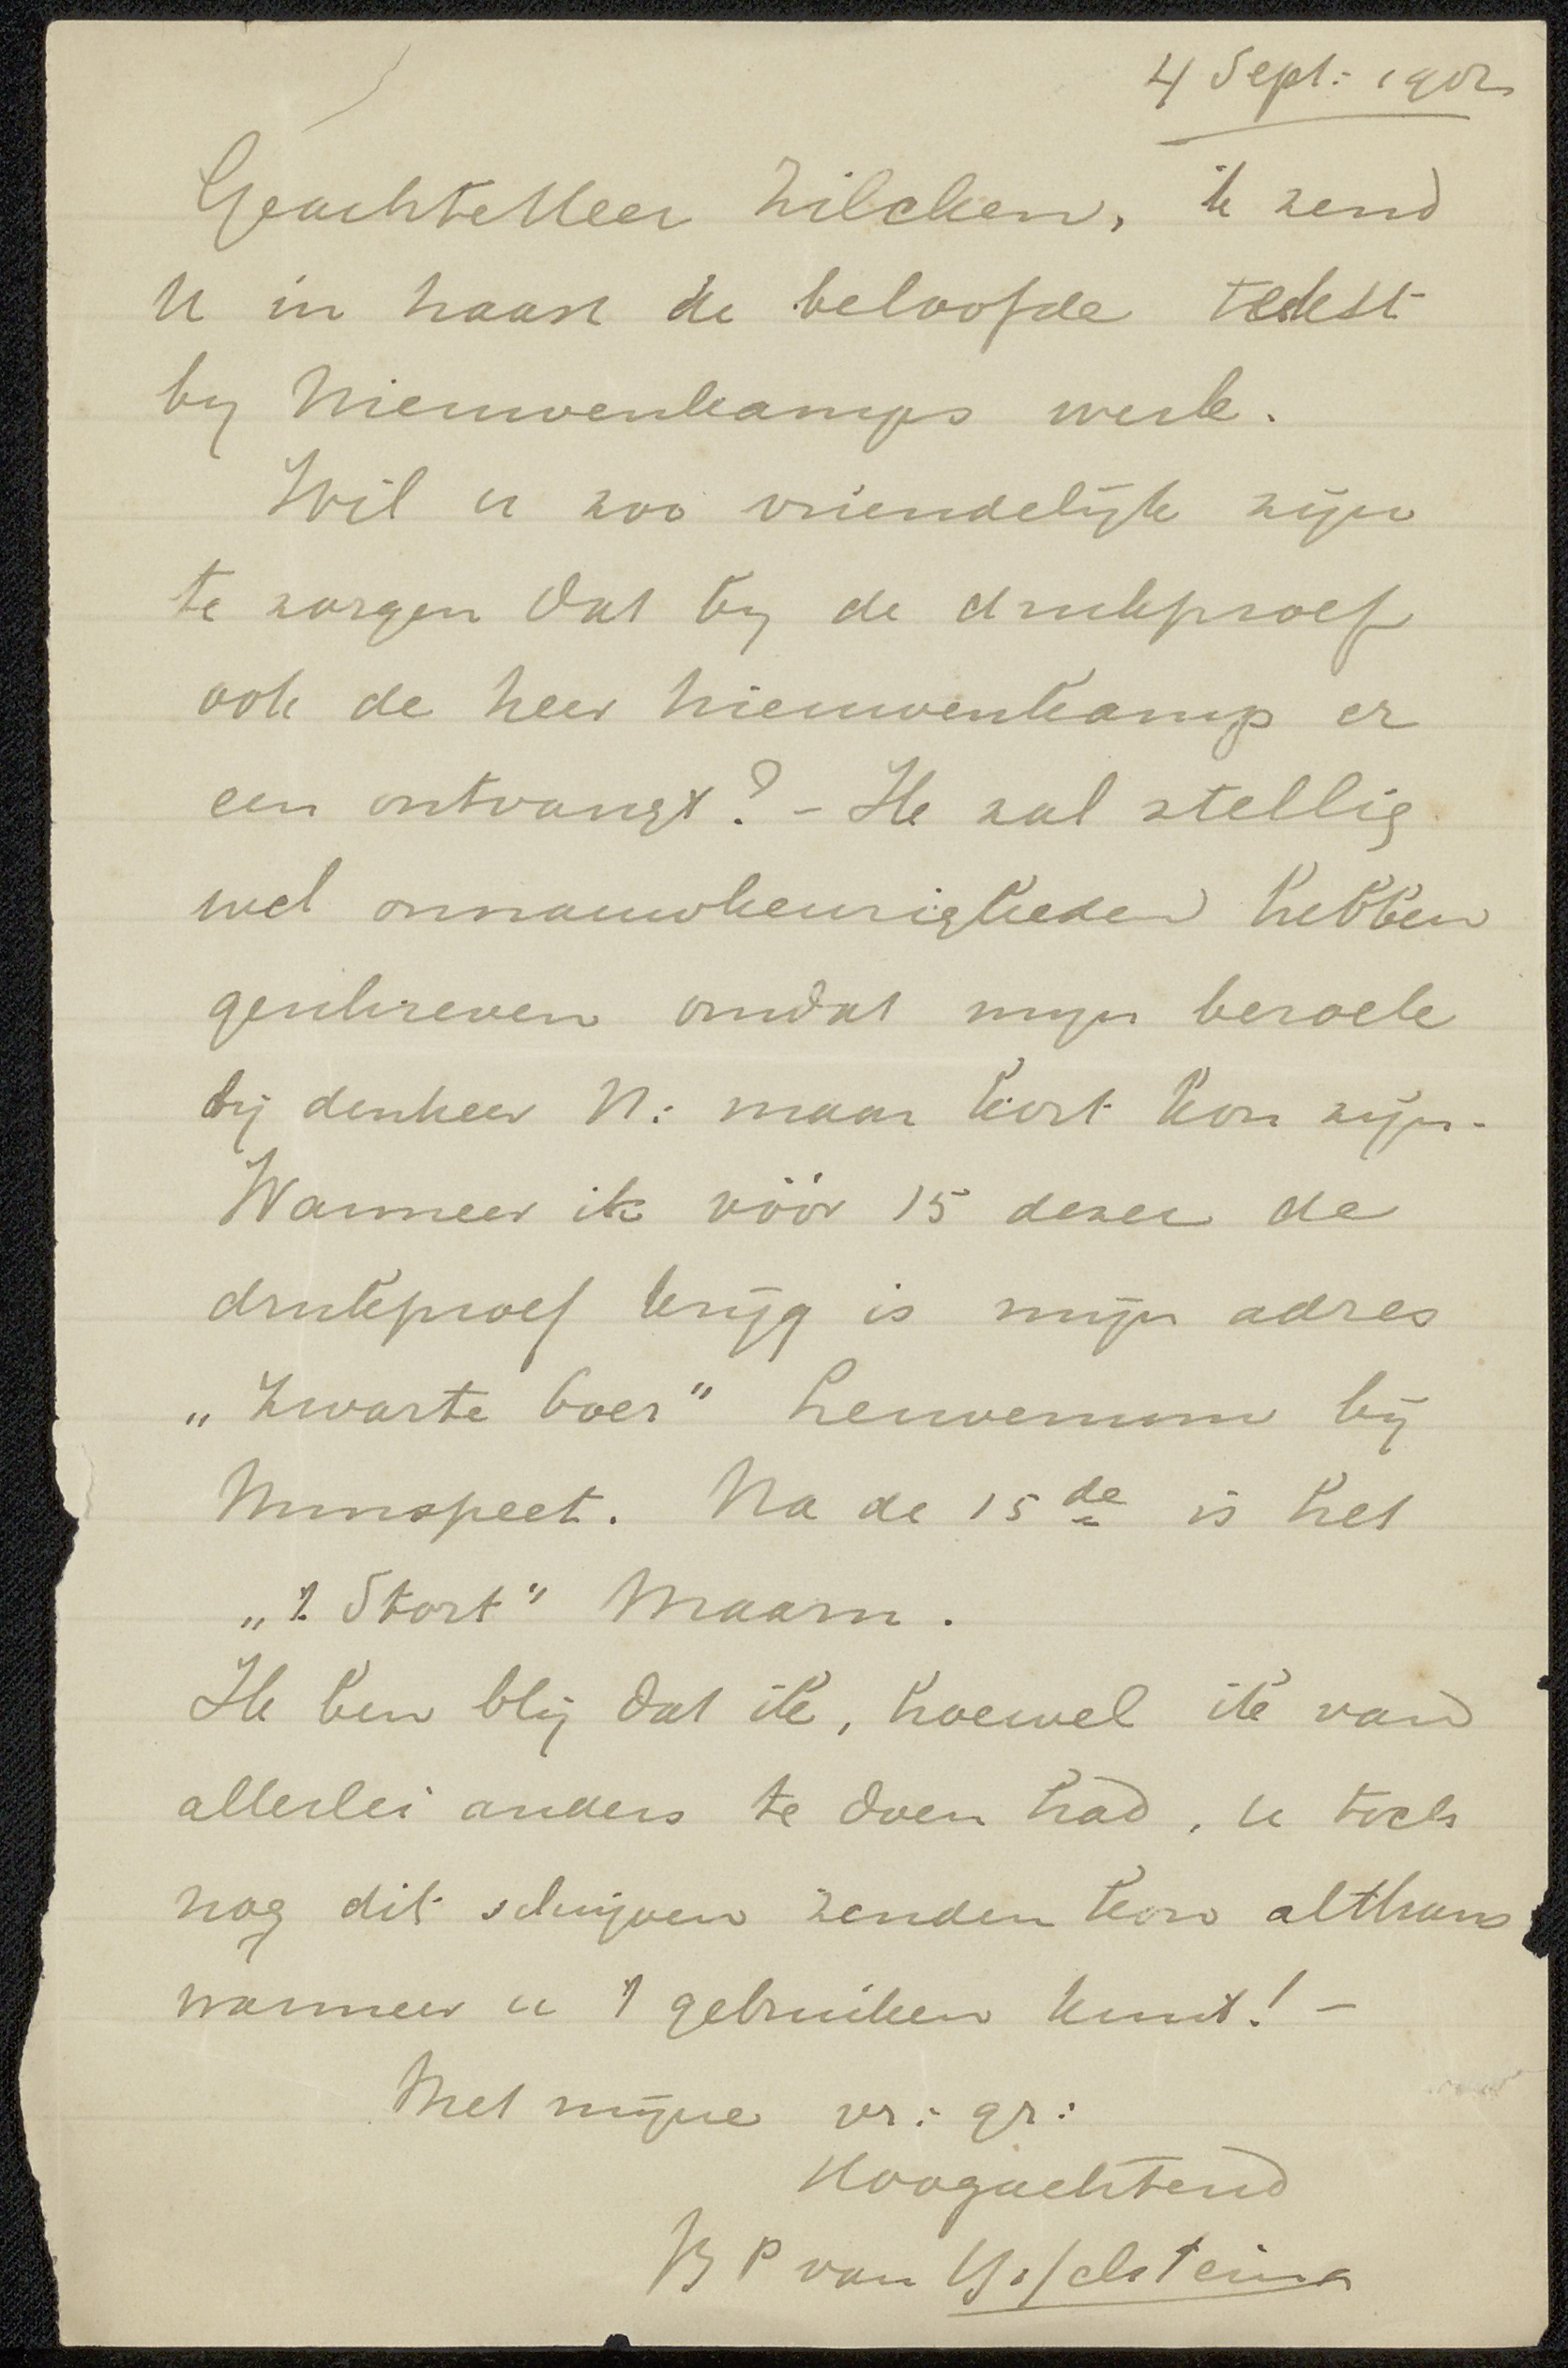 4 Sept: 1902
Geachte Heer Zilcken, ik zend
U in haast de beloofde tekst
by Nieuwenkamps werk.
Wil u zoo vriendelijk zijn
te zorgen dat by de drukproef
ook de heer Nieuwenkamp er
een ontvangt? - Ik zal stellig
wel onnauwkeurigheden hebben
geschreven omdat myn bezoek
bij den heer N: maar kort kon zijn.
Wanneer ik vóór 15 dezer de
drukproef krijg is mijn adres
„Zwarte boer" Leuvenum bij
Nunspeet. Na de 15de is het
„'t Stort" Maarn.
Ik ben blij dat ik, hoewel ik van
allerlei anders te doen had, u toch
nog dit schrijven zenden kon althans
wanneer u 't gebruiken kunt! -
Met mijne vr: gr:
Hoogachtend
P van Ysselstein